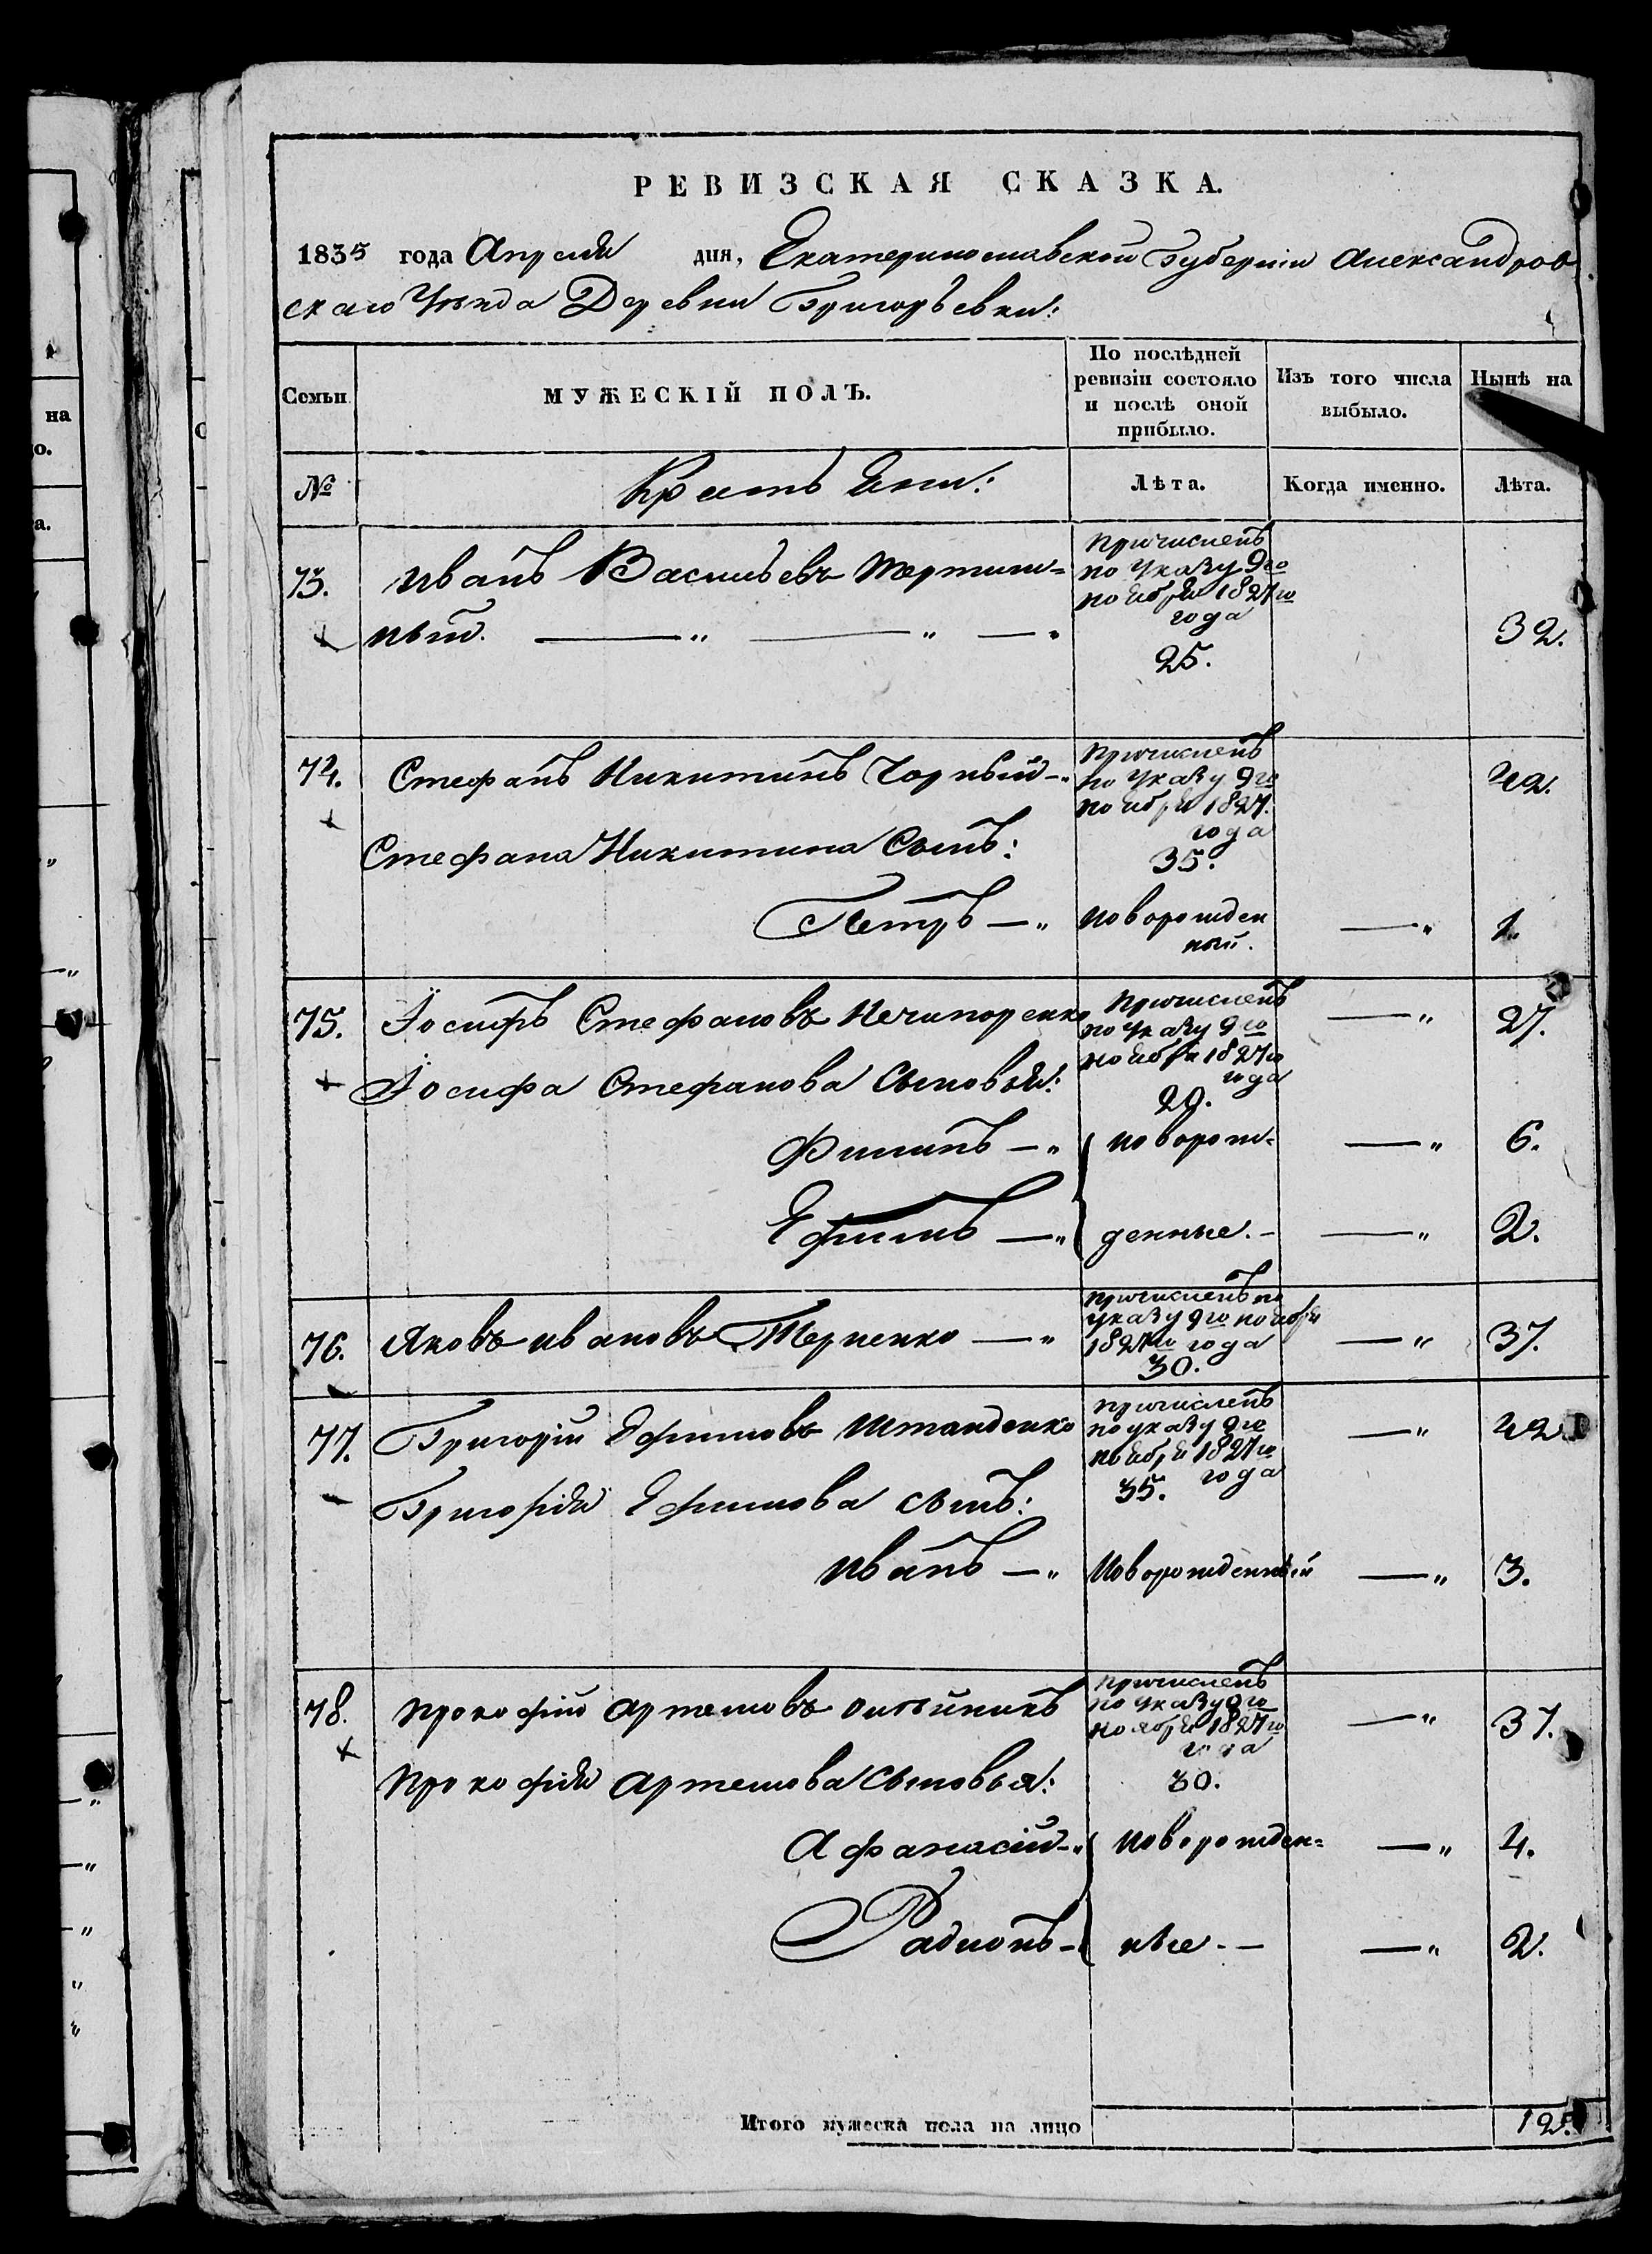 РЕВИЗСКАЯ СКАЗКА.
1835 года Апреля дня, Екатеринославской Губернии Александров
скаго Уезда Деревни Григорьевки:
Семьи
МУЖЕСКІЙ ПОЛЪ.
По послѣдней ревизіи состояло и послѣ оной прибыло.
Изъ того числа выбыло.
Нынѣ на
№
Крестьяни:
Лѣта.
Когда именно.
Лѣта.
73. Иванъ Васильевъ
ный. — " — " — "
Причисленъ
по указу 9го
ноября 1827го
года
25.
32.
74. Стефанъ Никитинъ Чорный — "
Причисленъ
по указу 9го
ноября 1827.
года
35.
42.
Стефана Никитина Сынъ:
Петръ — " Новорожден
ный. — " 1.
75. Іосифъ Стефановъ Нечипоренко
Причисленъ
по указу 9го
ноября 1827го
года
20.
— " 27.
Іосифа Стефанова Сыновья:
Филипъ — " новорож= — " 6.
Ефимъ — " денные. — — " 2.
76. Яковъ Ивановъ Терненко — "
Причисленъ по
указу 9го ноября
1827го года
30.
— " 37.
77. Григорій Ефимовъ Штанденко
Причисленъ
по указу 9го
ноября 1827го
года
35.
— " 42
Григорія Ефимова сынъ:
Иванъ — " Новорожденный — " 3.
78. Прокофій Артемовъ Олейникъ
Причисленъ
по указу 9го
ноября 1827го
года
30.
— " 37.
Прокофія Артемова Сыновья:
Афанасій — " Новорожден= — " 4.
Радионъ — ные. — — " 2.
Итого мужеска пола на лицо
12.
на
о.
а.